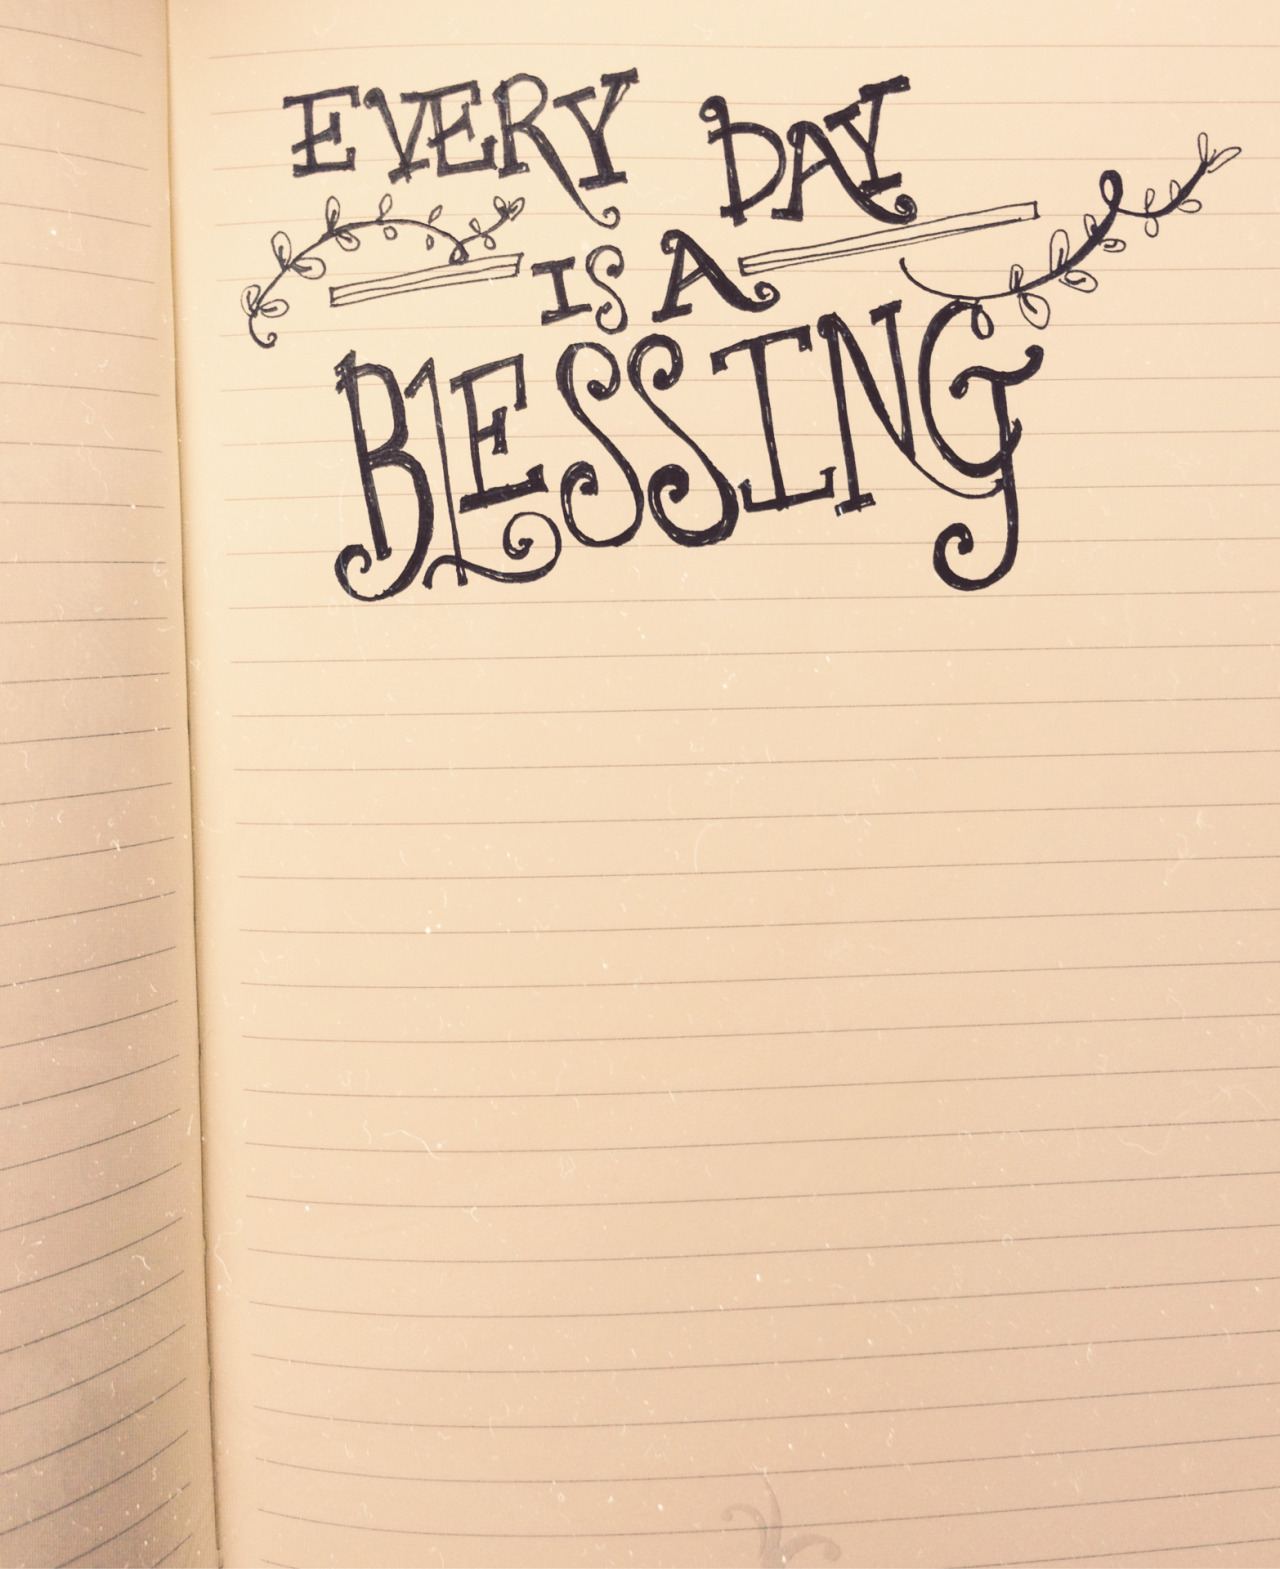 EVERY DAY
IS A
BLESSING